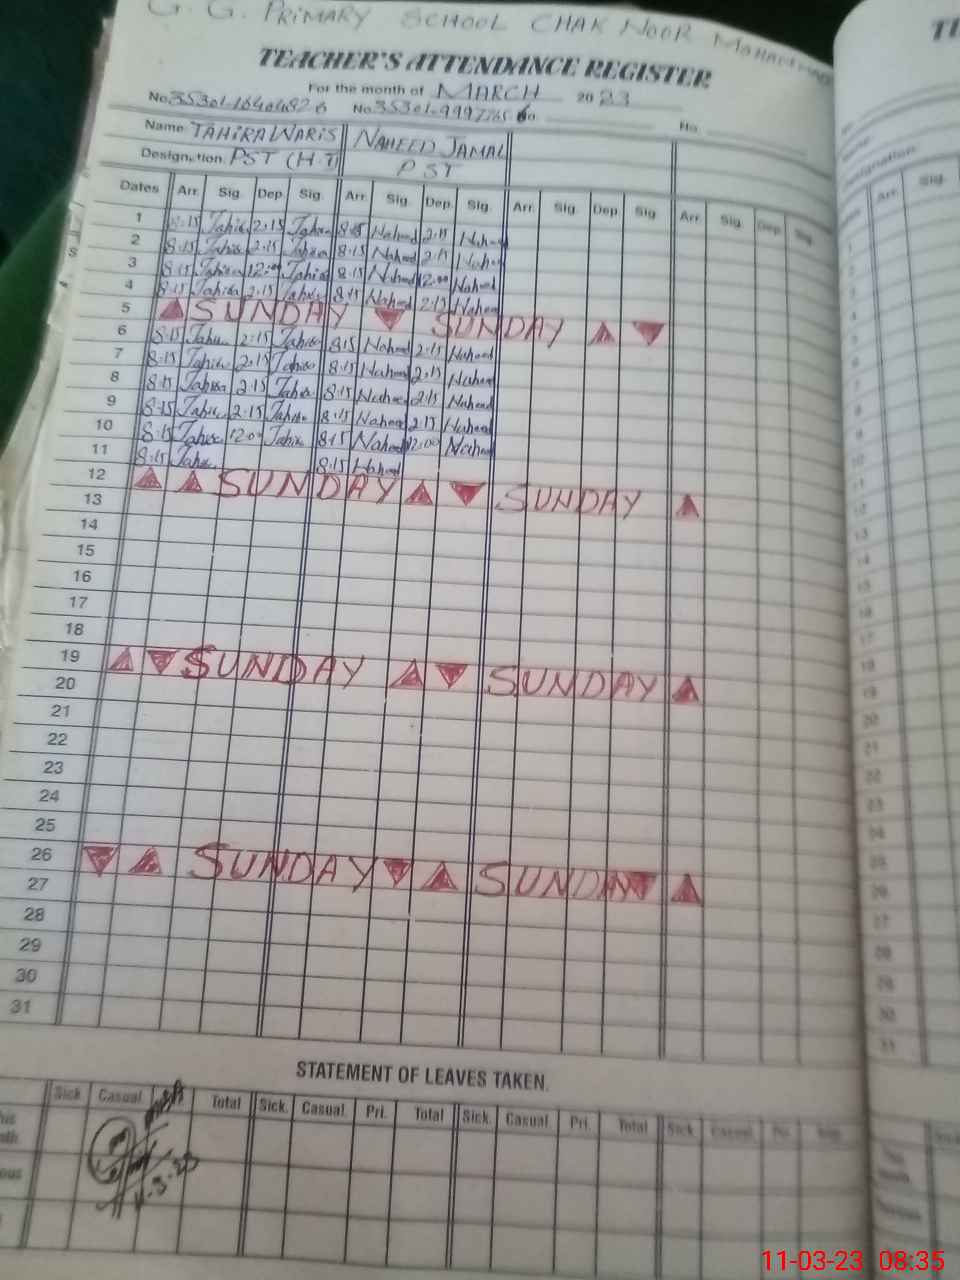 G. G. PRIMARY SCHOOL CHAK NOOR
TEACHER'S ATTENDANCE REGISTER
For the month of MARCH 2023
No. No. No. No.
Name: TAHIRA WARIS NAHEED JAMAL
Designation: PST (H.T) PST
Dates Arr. Sig. Dep. Sig. Arr. Sig. Dep. Sig. Arr. Sig. Dep. Sig. Arr. Sig. Dep. Sig.
1 8:15 Tahira 2:15 Tahira 8:15 Naheed 2:15 Naheed
2 8:15 Tahira 2:15 Tahira 8:15 Naheed 2:15 Naheed
3 8:15 Tahira 12:00 Tahira 8:15 Naheed 12:00 Naheed
4 8:15 Tahira 2:15 Tahira 8:15 Naheed 2:15 Naheed
5 SUNDAY SUNDAY
6 8:15 Tahira 2:15 Tahira 8:15 Naheed 2:15 Naheed
7 8:15 Tahira 2:15 Tahira 8:15 Naheed 2:15 Naheed
8 8:15 Tahira 2:15 Tahira 8:15 Naheed 2:15 Naheed
9 8:15 Tahira 2:15 Tahira 8:15 Naheed 2:15 Naheed
10 8:15 Tahira 12:00 Tahira 8:15 Naheed 12:00 Naheed
11 8:15 Tahira 8:15 Naheed
12 SUNDAY SUNDAY
13
14
15
16
17
18
19 SUNDAY SUNDAY
20
21
22
23
24
25
26 SUNDAY SUNDAY
27
28
29
30
31
STATEMENT OF LEAVES TAKEN.
Sick. Casual. Total Sick. Casual. Pri. Total Sick. Casual Pri. Total Sick. Casual
11-3-23
11-03-23 08:35